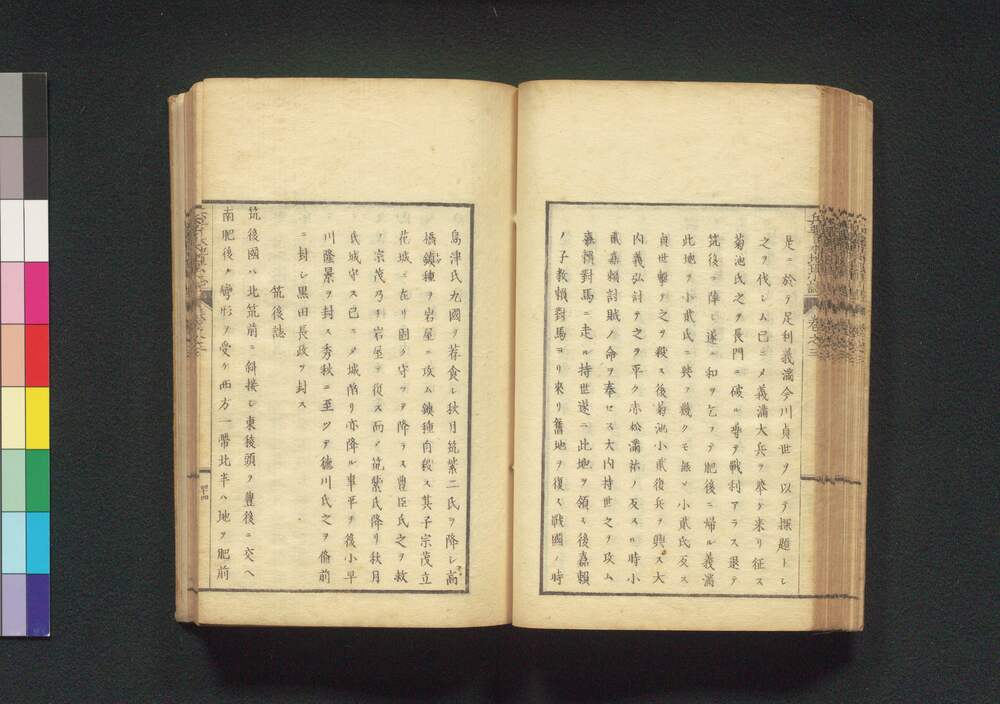 是ニ於テ足利義滿今川貞世ヲ以テ探題トシ
之ヲ伐シム已ニメ義滿大兵ヲ擧ケ来リ征ス
菊池氏之ヲ長門ニ破ル尋テ戰利アラス退テ
筑後ニ陣シ遂ニ和ヲ乞フテ肥後ニ帰ル義滿
此地ヲ小貳氏ニ與フ幾クモ無シ小貳氏反ス
貞世撃テ之ヲ殺ス後菊池小貳復兵ヲ興ス大
内義弘討テ之ヲ平ク赤松滿祐ノ反スル時小
貳嘉賴討賊ノ命ヲ奉セス大内持世之ヲ攻ム
嘉賴對馬ニ走ル持世遂ニ此地ヲ領ス後嘉賴
ノ子教賴對馬ヨリ来リ舊地ヲ復ス戰國ノ時
島津氏九國ヲ荐食シ秋月筑紫二氏ヲ降シ高
橋鎮種ヲ岩屋ニ攻ム鎮種自殺ス其子宗茂立
花城ニ在リ固ク守ツテ降ラス豊臣氏之ヲ救
フ宗茂乃チ岩屋ヲ復ス而メ筑紫氏降リ秋月
氏城守ス已ニメ城陥リ亦降ル事平テ後小早
川隆景ヲ封ス秀秋ニ至ツテ德川氏之ヲ備前
ニ封シ黒田長政ヲ封ス
筑後誌
筑後國ハ北筑前ニ斜接シ東後頭ヲ豊後ニ交ヘ
南肥後ノ彎形ヲ受ケ西方一帶北半ハ地ヲ肥前
卷之三